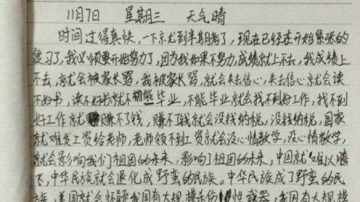 11月7日 星期三 天气晴
时间过得真快,一下就到半期考了,现在已经在开始紧张的
复习了,我必须要开始努力了,因为如果不努力,成绩就上不去,我成绩上
不去,就会被家长骂,我被家长骂,就会失去信心,失去信心就会读
不好书,读不好书就不能毕业,不能毕业就会找不到好工作,找不到
好工作就赚不了钱,赚不了钱就会没钱纳税,没钱纳税,国家
就难发工资给老师,老师领不到工资就会没心情教学,没心情教学,
就会影响我们祖国的未来,影响了祖国的未来,中国就难以腾
飞,中华民族就会退化成野蛮的民族。中华民族成了野蛮的民
族,美国就会怀疑我国有大规 性武器,我国有大规